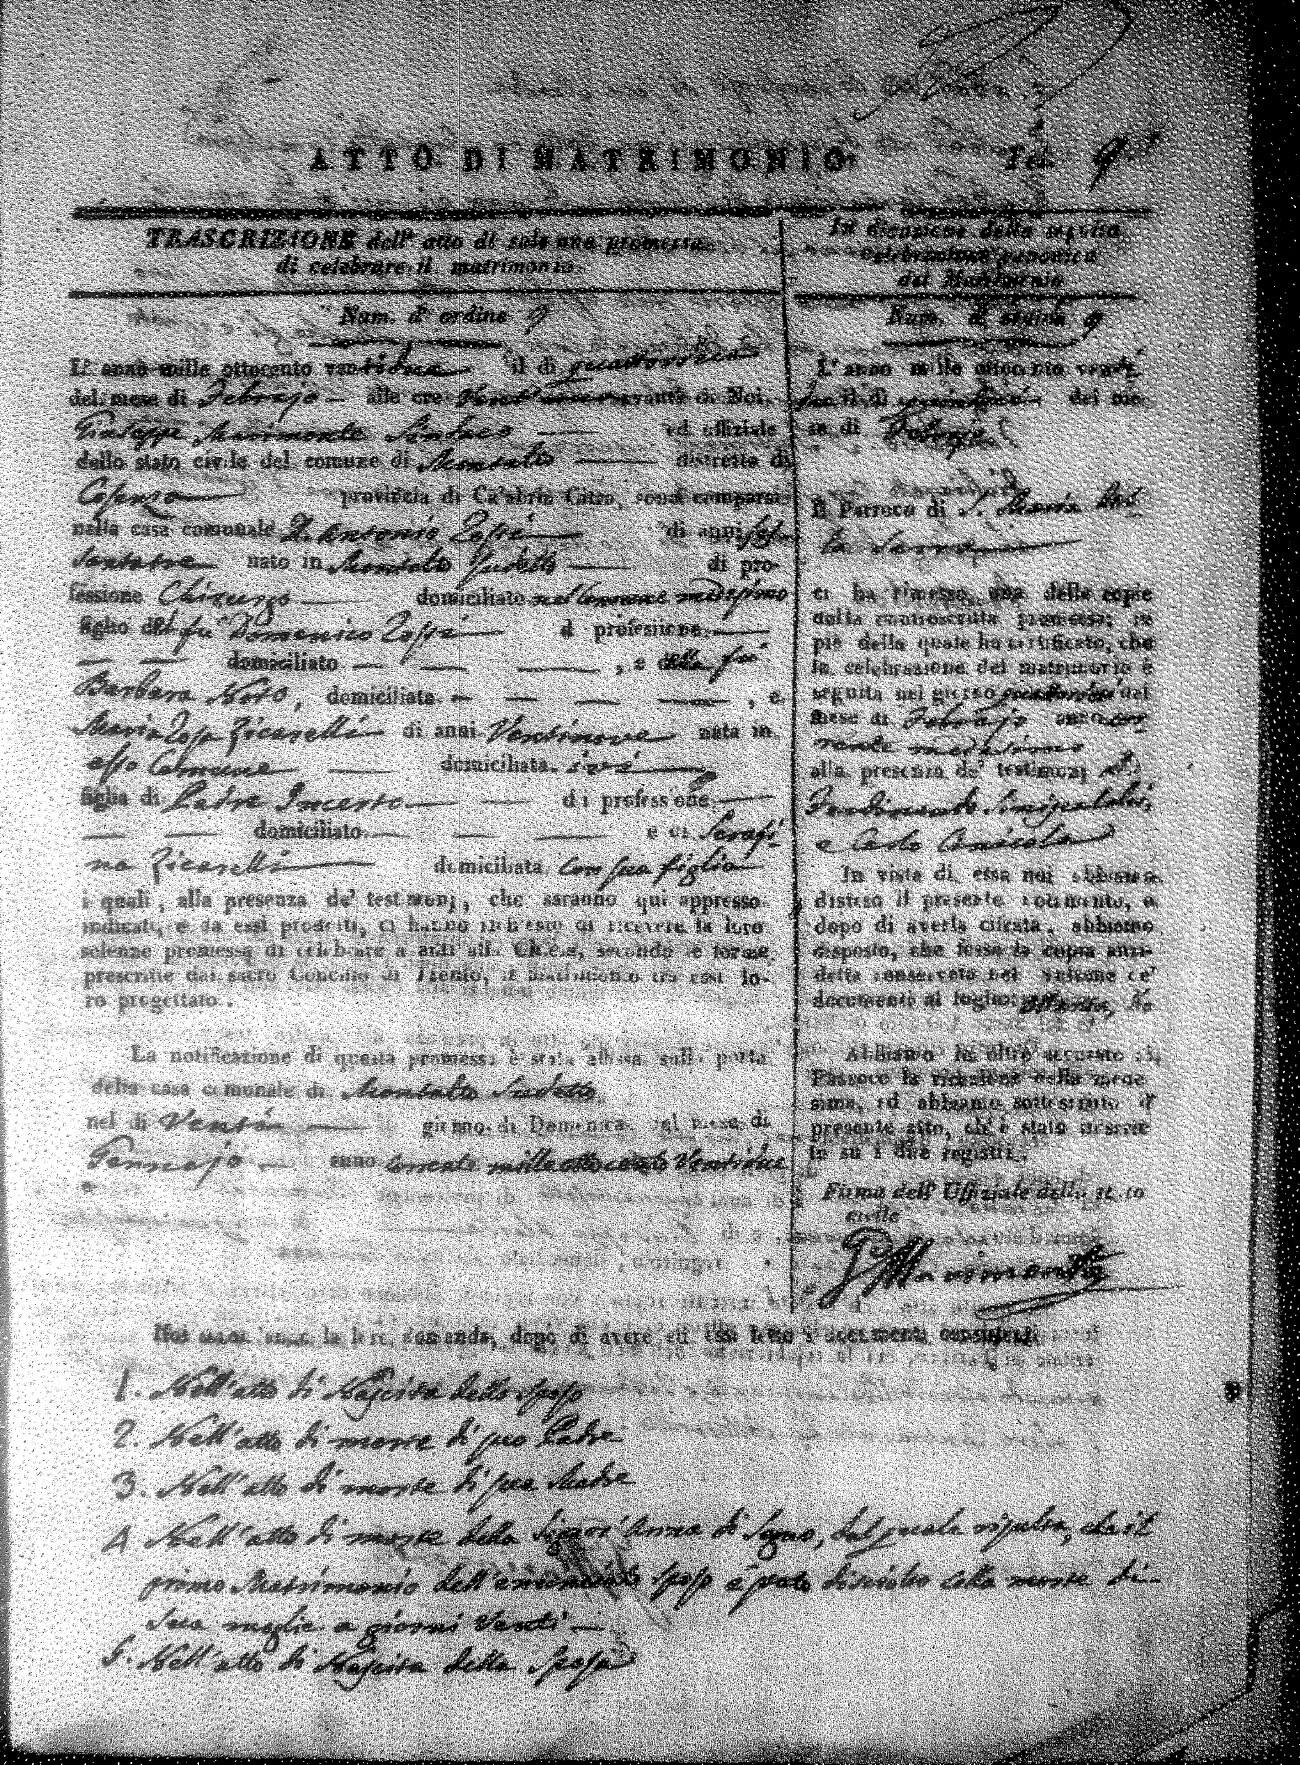 ATTO DI MATRIMONIO
9
TRASCRIZIONE dell' atto di solenne promessa
di celebrare il matrimonio.
Num. d' ordine 9
L' anno mille ottocento ventidue il dì quattordici
del mese di Febrajo alle ore avanti di Noi
Giuseppe Marimonte Sindaco ed uffiziale
dello stato civile del comune di Montalto distretto di
Cosenza provincia di Calabria Citra, sono comparsi
nella casa comunale D. Antonio Rossi di anni ses-
santatre nato in Montalto sudetto di pro-
fessione Chirurgo domiciliato nel Comune medesimo
figlio del fu Domenico Rossi di professione
domiciliato , e della fu
Barbara Noto, domiciliata , e
Maria Rosa Zicarelli di anni Ventinove nata in
esso Comune domiciliata ivi
figlia di Padre Incerto di professione
domiciliato e di Serafi-
na Zicarelli domiciliata con sua figlia
i quali, alla presenza de' testimonj, che saranno qui appresso
indicati, e da essi prodotti, ci hanno richiesto di ricevere la loro
solenne promessa di celebrare avanti alla Chiesa, secondo le forme
prescritte dal sacro Concilio di Trento, il matrimonio tra essi lo-
ro progettato.
La notificazione di questa promessa è stata affissa sulla porta
della casa comunale di Montalto Sudetto
nel dì Venti giorno di Domenica del mese di
Gennajo anno corrente mille ottocento Ventidue
Noi secondando la loro domanda, dopo di avere ad essi letto i documenti consistenti
1. Nell'atto di Nascita dello sposo
2. Nell'atto di morte di suo Padre
3. Nell'atto di morte di sua Madre
4 Nell'atto di morte della Signor'Anna di Segno, dal quale risulta, che il
primo Matrimonio dell'enunciato sposo è stato disciolto colla morte di
Sua moglie a giorni Venti
5. Nell'atto di Nascita della Sposa
In dicazione della seguita
celebrazione canonica
del Matrimonio
Num. d' ordine 9
L' anno mille ottocento venti-
due il dì quattordici del me-
se di Febrajo
Il Parroco di S. Maria
la Serra
ci ha rimesso una delle copie
della controscritta promessa; in
piè della quale ha certificato, che
la celebrazione del matrimonio è
seguita nel giorno quattordici del
mese di Febrajo anno cor-
rente medesimo
alla presenza de' testimonj
Ferdinando Sinipaldi,
e Carlo
In vista di essa noi abbiamo
disteso il presente notamento, e
dopo di averla cifrata, abbiamo
disposto, che fosse la copia anzi-
detta conservata nel volume de'
documenti al foglio
Abbiamo in oltre accusato al
Parroco la ricezione della mede
sima, ed abbiamo sottoscritto il
presente atto, ch'è stato inscritto
in su i due registri.
Firma dell' Uffiziale dello stato
civile
G Marimonte